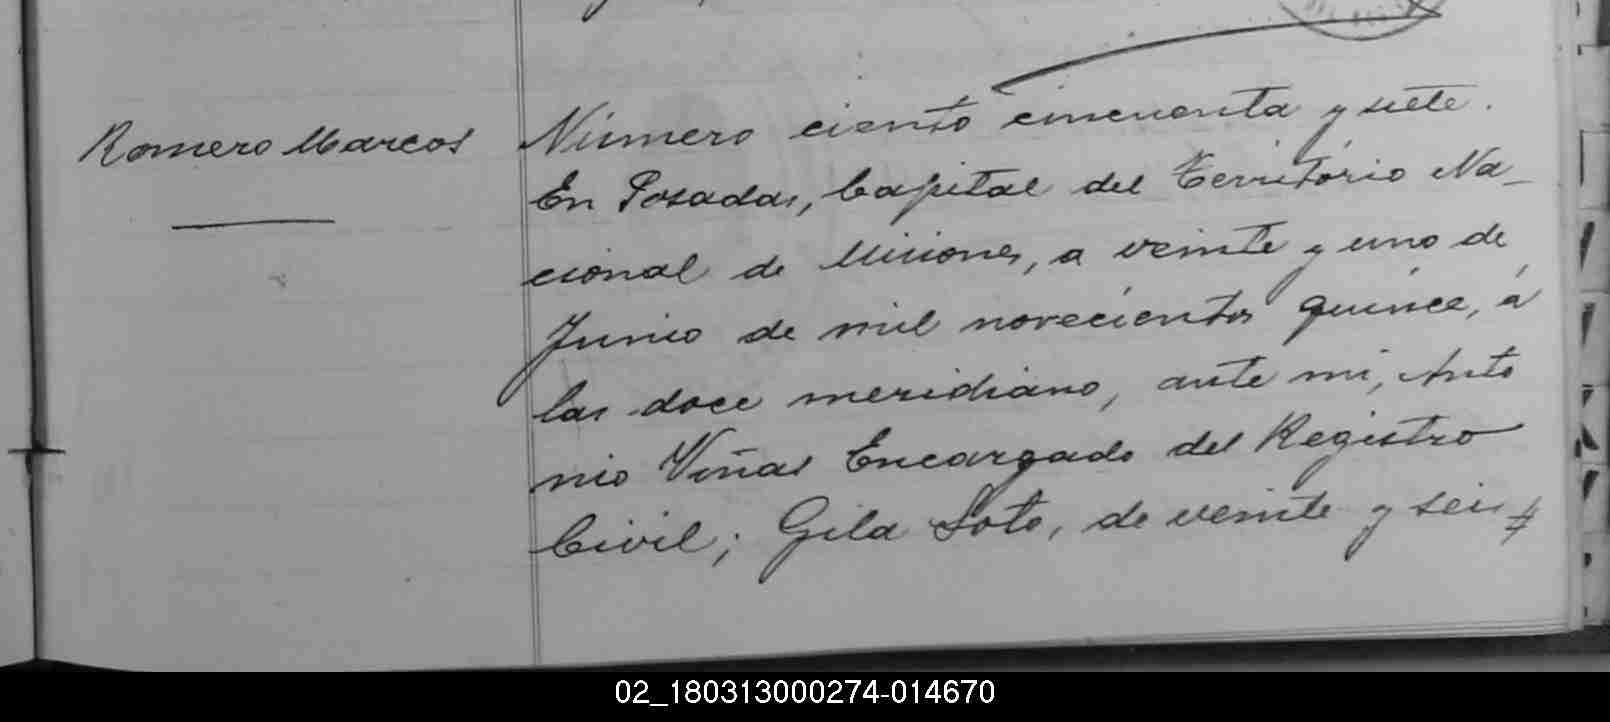 Romero Marcos
Número ciento cincuenta y siete.
En Posadas, Capital del Territorio Na-
cional de Misiones, a veinte y uno de
Junio de mil novecientos quince, á
las doce meridiano, ante mi, Anto
nio Viñas Encargado del Registro
Civil; Gila Soto, de veinte y seis #
02_180313000274-014670